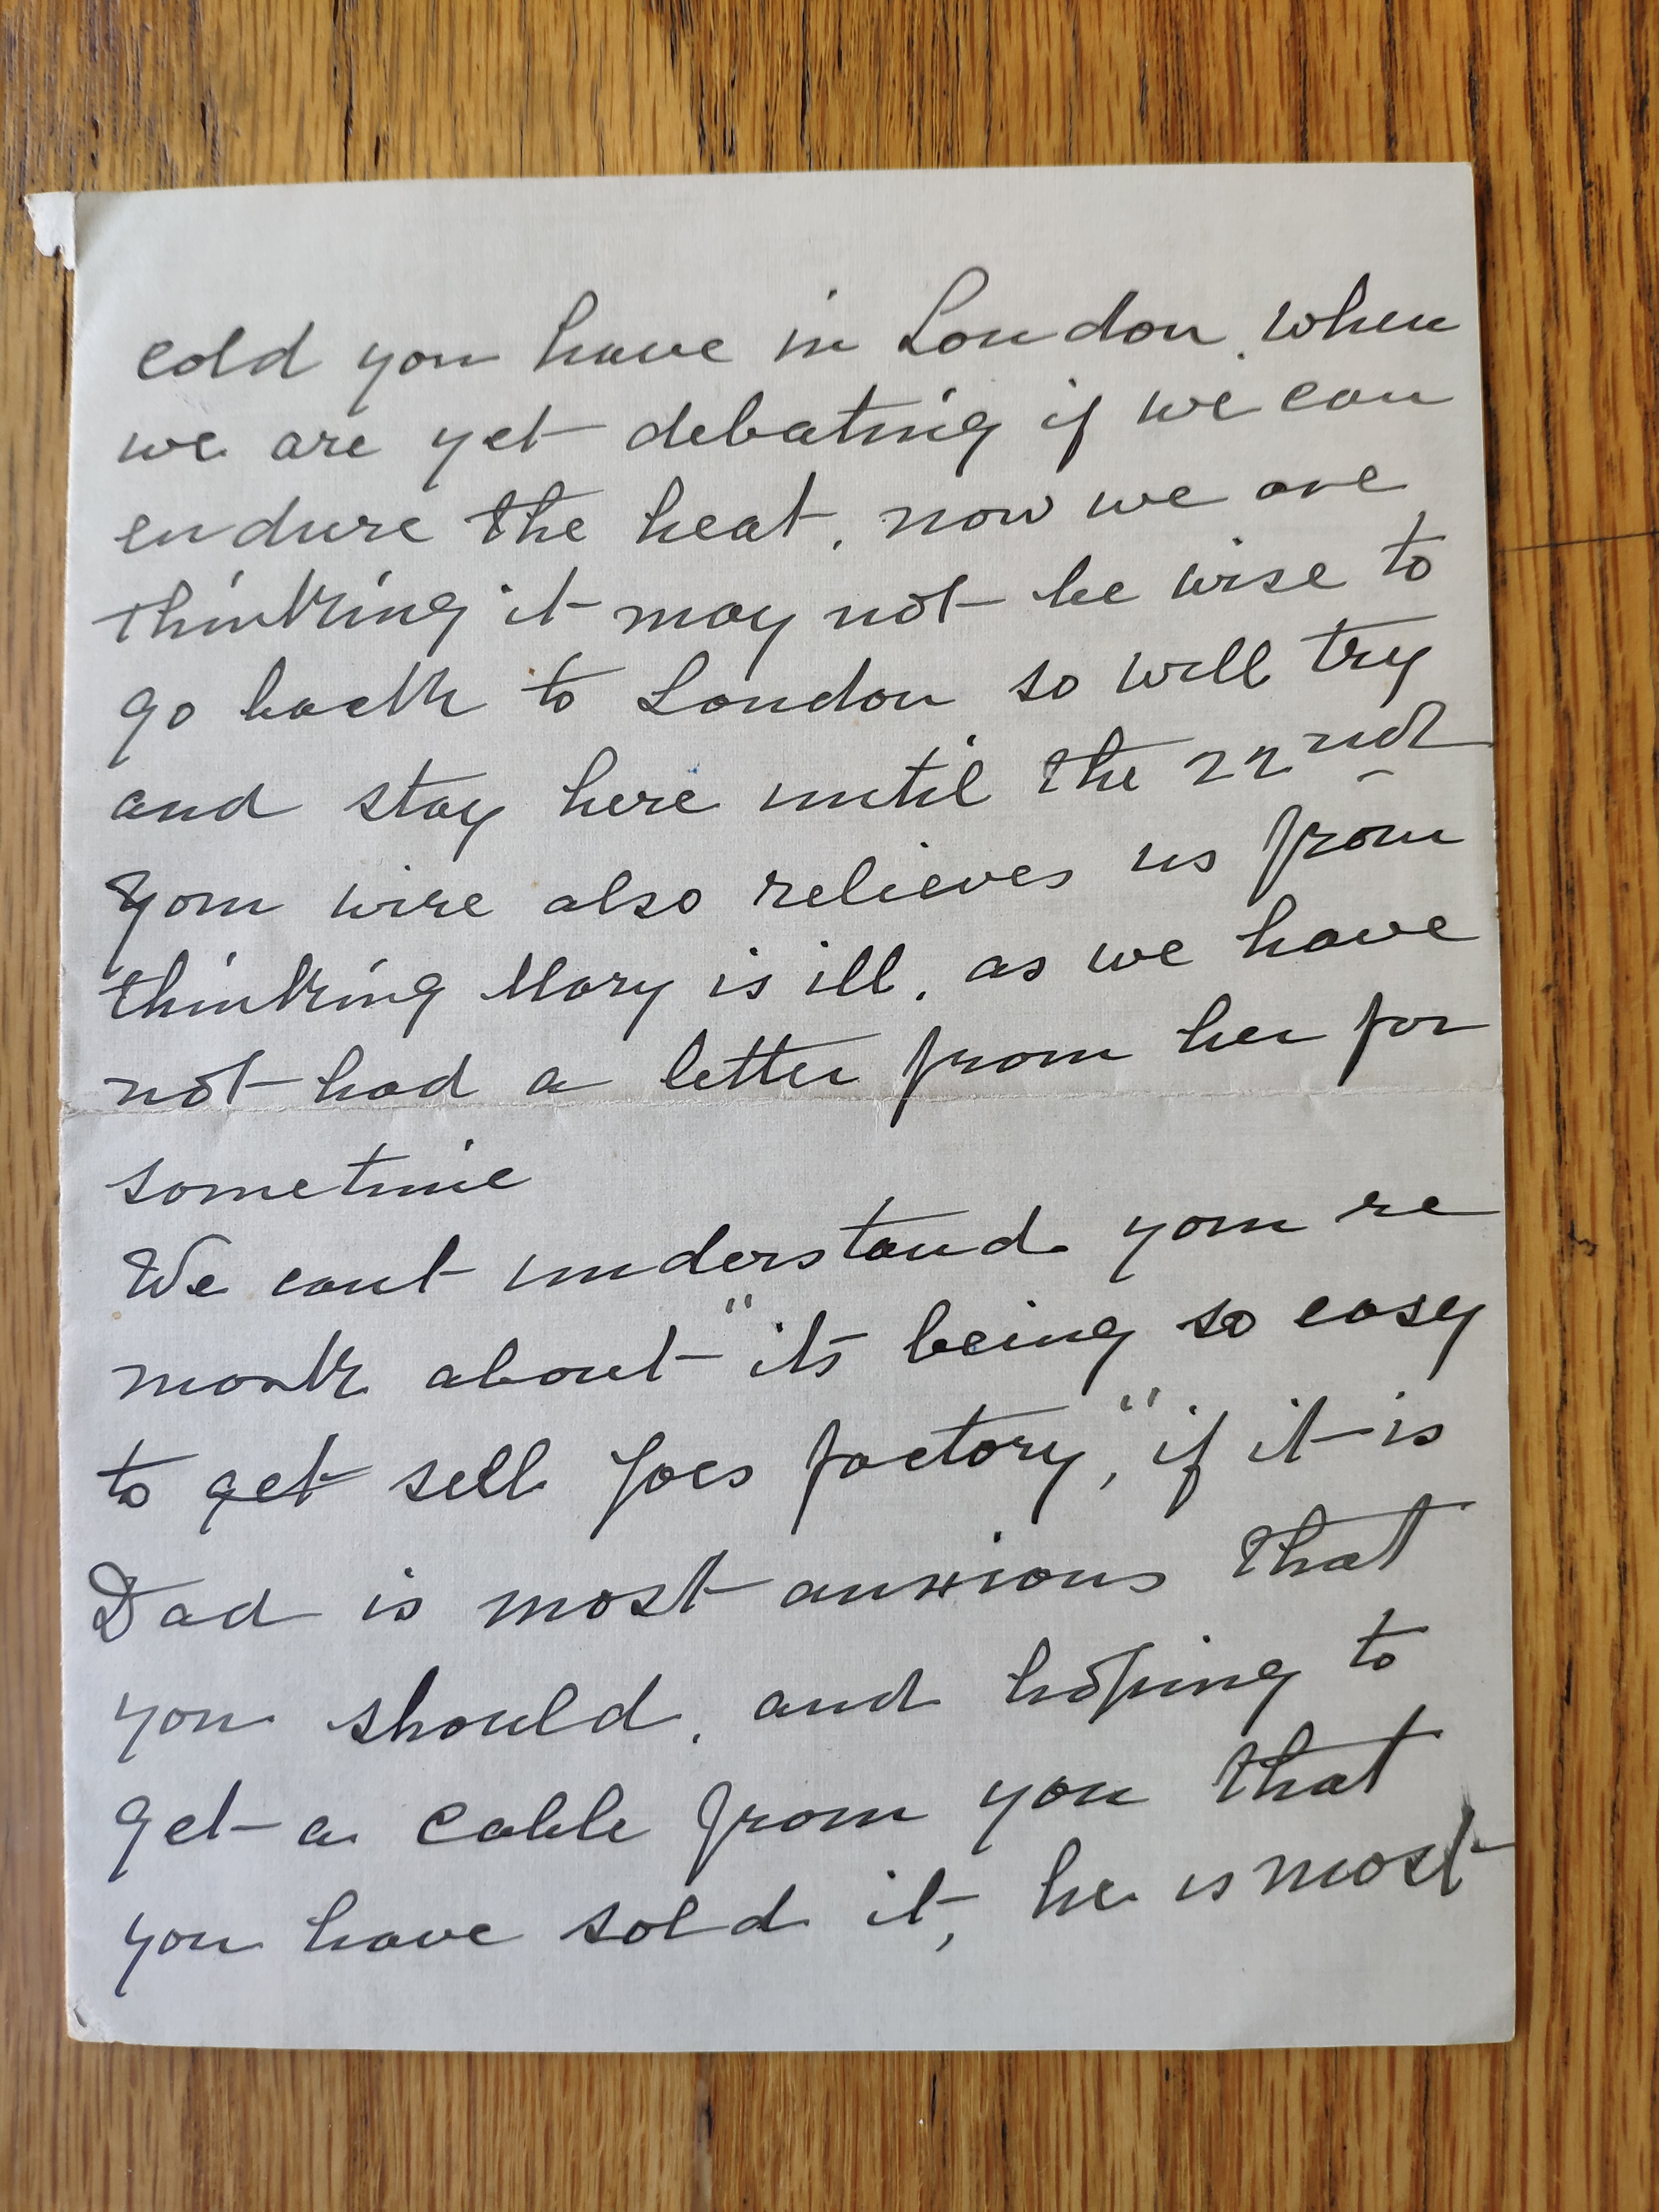 cold you have in London. when
we are yet debating if we can
endure the heat. now we are
thinking it may not be wise to
go back to London so will try
and stay here until the 22nd
Your wire also relieves us from
thinking Mary is ill. as we have
not had a letter from her for
sometime
We cant understand your re
mark about "its being so easy
to get sell Joes factory," if it is
Dad is most anxious that
you should. and hoping to
get a cable from you that
you have sold it, he is most